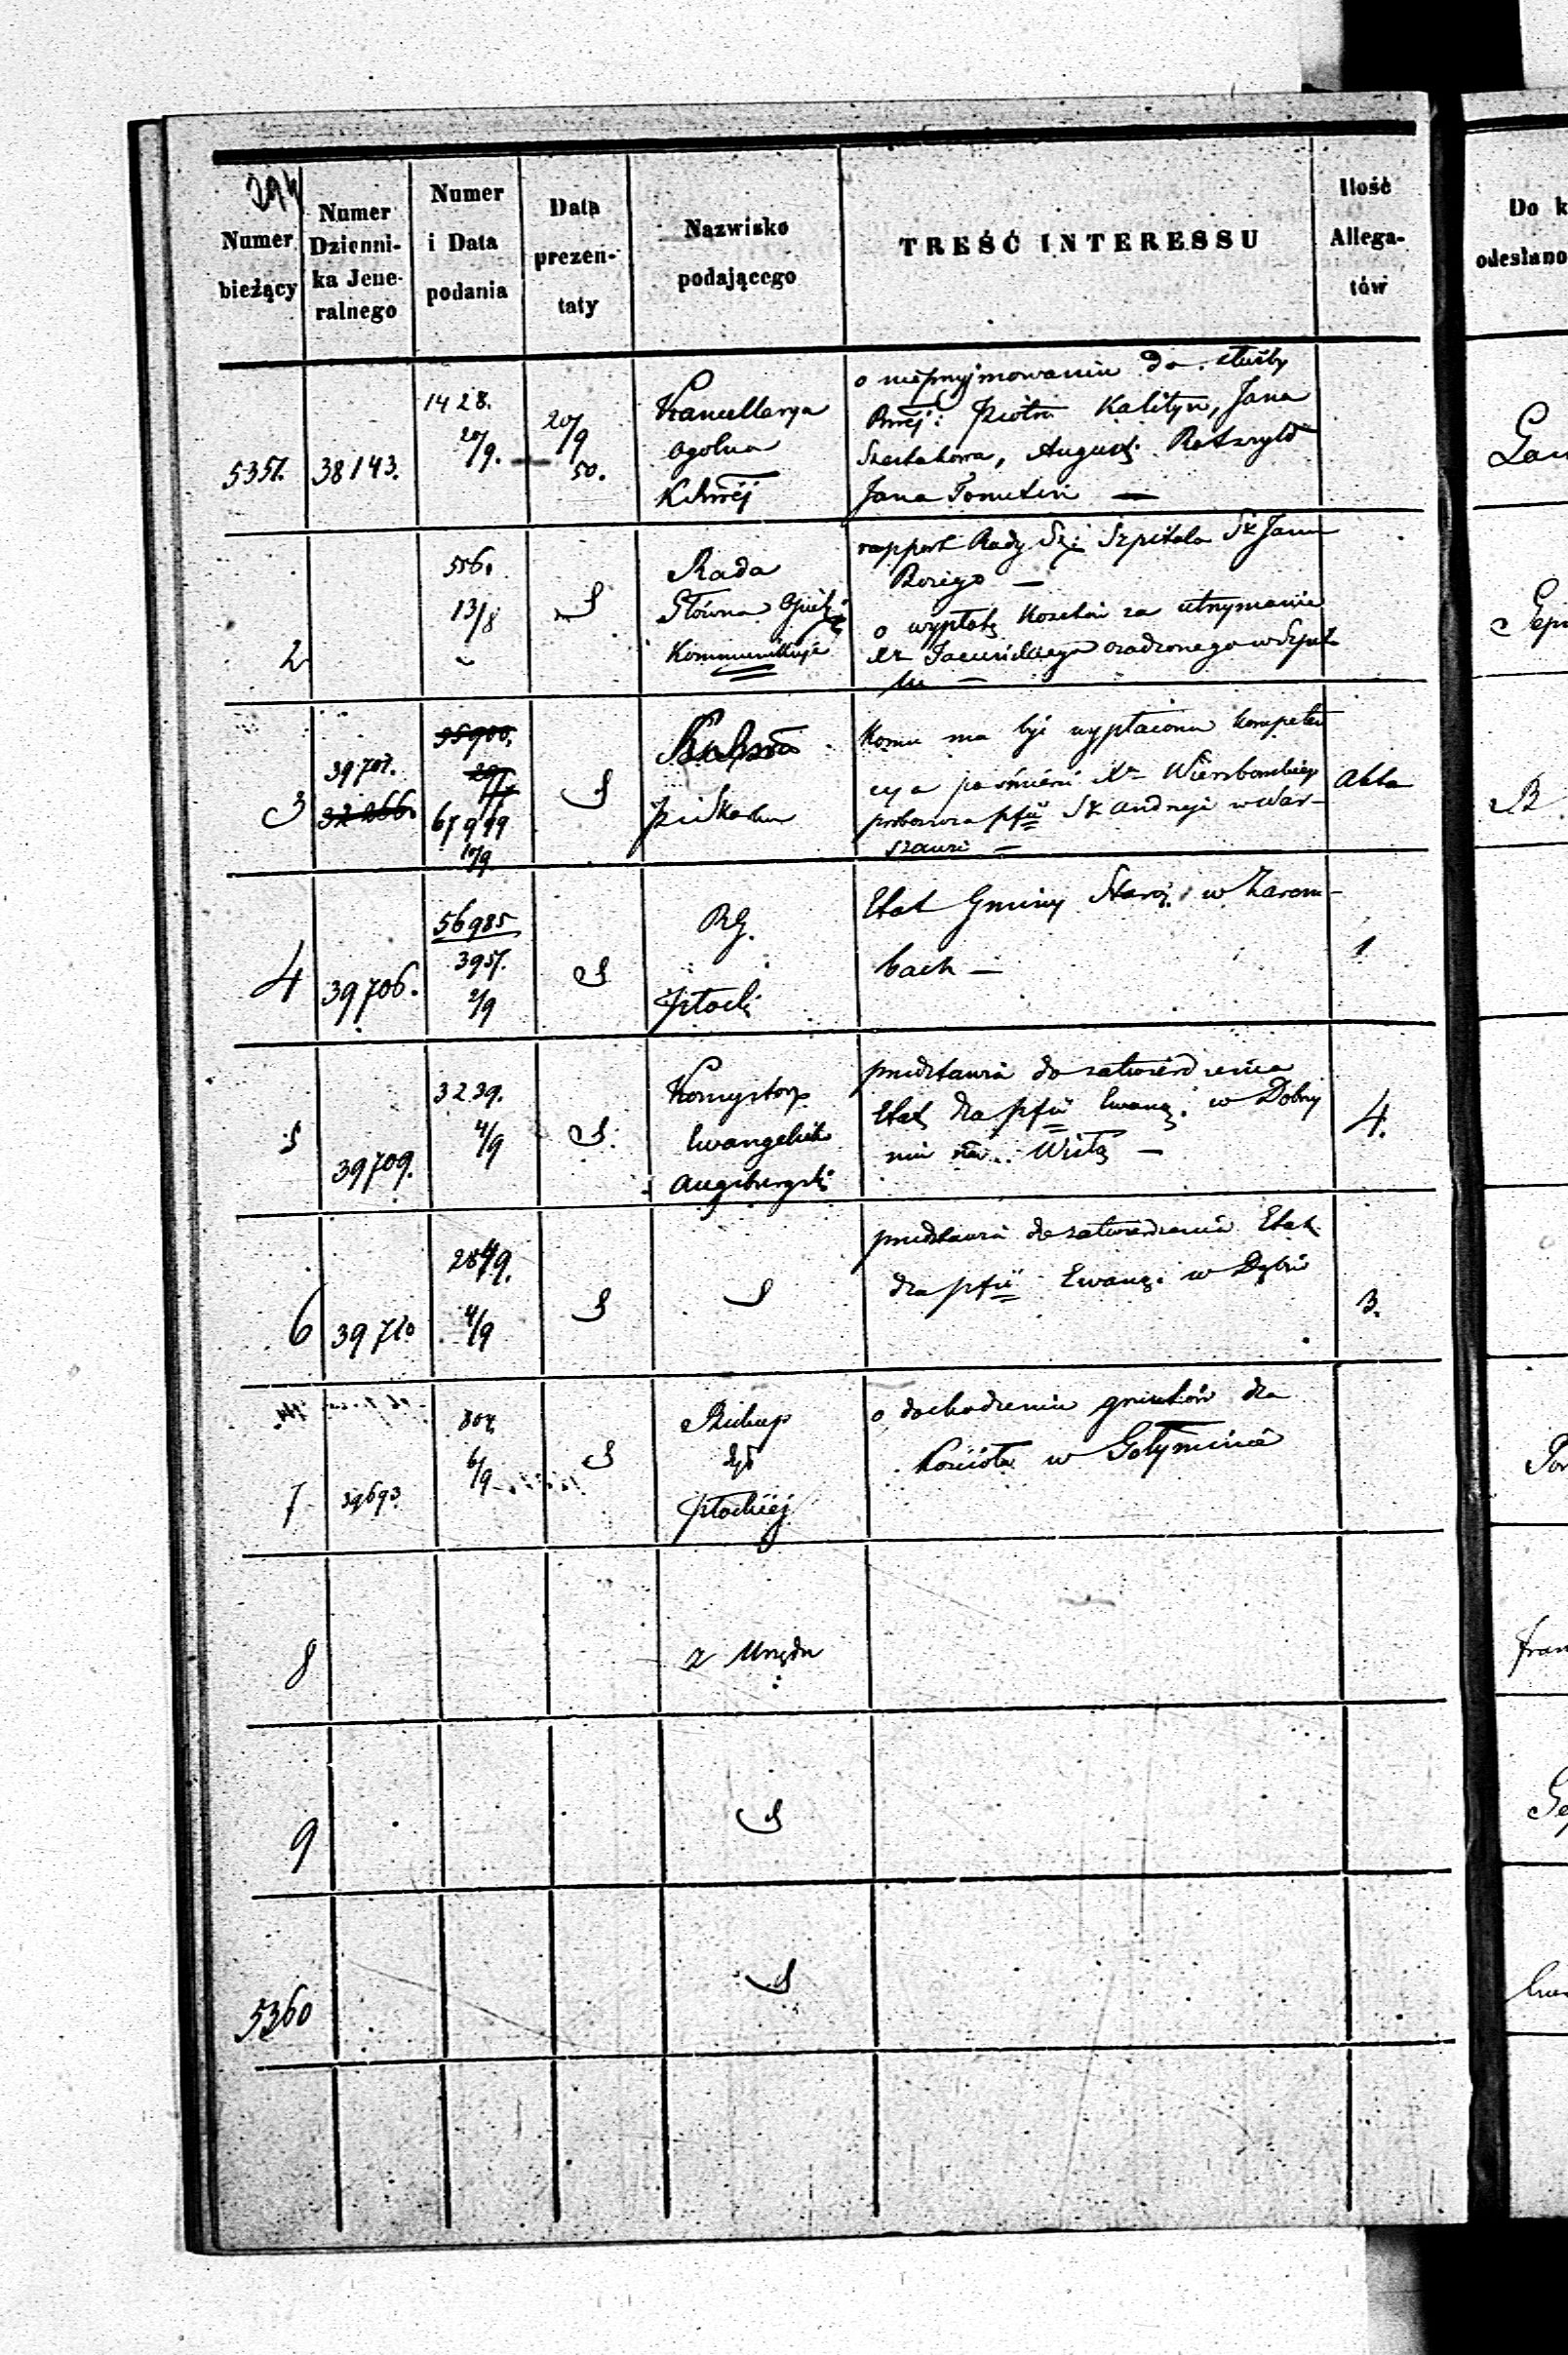 294
Numer bieżący
Numer Dzienni-ka Jene-ralnego
Numer i Data podania
Data prezen-taty
Nazwisko podającego
TREŚĆ INTERESSU
Ilość Allega-tów
Do k
odesłano
5351. 38143.
1428.
20/9.
20/9
50.
Kancellarya
ogolna
o nieprzyjmowaniu do służby
Piotra Kalityn, Jana
August
Jana
2
556.
13/8
Rada
Główna Opiek
Kommunikuje
rapport Rady Szp Szpitala Sk Jana
Bożego —
o wypłatę kosztów za utrzymanie
osadzonego w Szpit
lu —
3
39707.
32266.
35900,
67999
10/9
Komu ma być wypłacona kompeten
cya po śmierci Xa
proboszcza pfii Sk Andrzeja w War-
szawie —
Akta
4 39706.
56985
3957.
2/9
RG.
Płocki
Etat Gminy Staroz. w Zarem-
bach —
1
5 39709.
3239.
4/9
Konsystorz
Ewangelick
Augsburgski
przedstawia do zatwierdzenia
Etat dla pfii Ewang. w Dobrzy
niu nad Wisłą —
4.
6 39710
4/9
przedstawia do zatwierdzenia Etat
dla pfii Ewang. w Dąbiu
3.
7 39693.
804
6/9
Biskup
Płockiej
o dochodzeniu gruntów dla
kościoła w Gołyminie
8
z Urzędu
9
5360